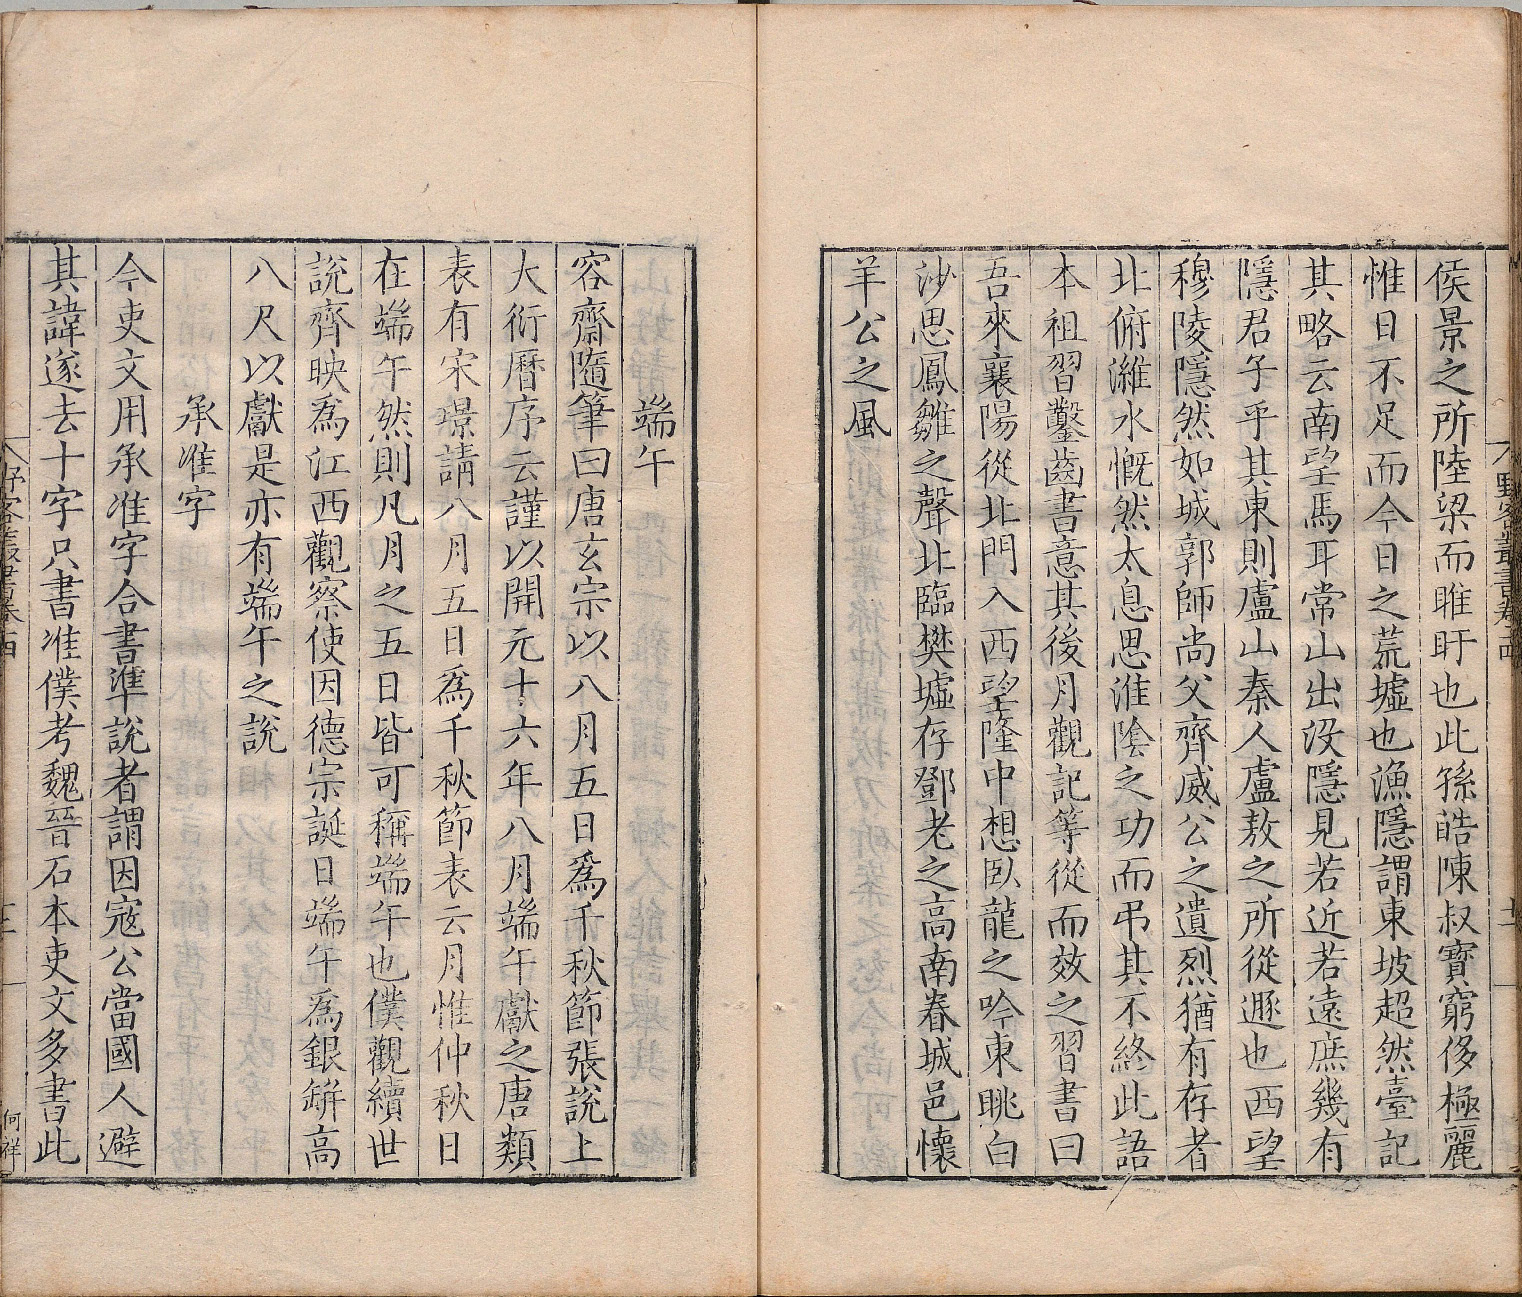 侯景之所陸梁而睢盱也此孫皓陳叔寶窮侈極麗
惟日不足而今日之荒墟也漁隱謂東坡超然臺記
其略云南望馬耳常山出沒隱見若近若遠庶幾有
隱君子乎其東則盧山秦人盧敖之所從遯也西望
穆陵隱然如城郭師尚父齊威公之遺烈猶有存者
北俯濰水慨然太息思淮陰之功而弔其不終此語
本祖習鑿齒書意其後月觀記等從而效之習書曰
吾來襄陽從北門入西望隆中想臥龍之吟東眺白
沙思鳳雛之聲北臨樊墟存鄧老之高南眷城邑懷
羊公之風
端午
容齋隨筆曰唐玄宗以八月五日為千秋節張說上
大衍曆序云謹以開元十六年八月端午獻之唐類
表有宋璟請八月五日為千秋節表云月惟仲秋日
在端午然則凡月之五日皆可稱端午也僕觀續世
說齊映為江西觀察使因德宗誕日端午為銀缾高
八尺以獻是亦有端午之說
承准字
今吏文用承准字合書準說者謂因寇公當國人避
其諱遂去十字只書准僕考魏晉石本吏文多書此
何祥